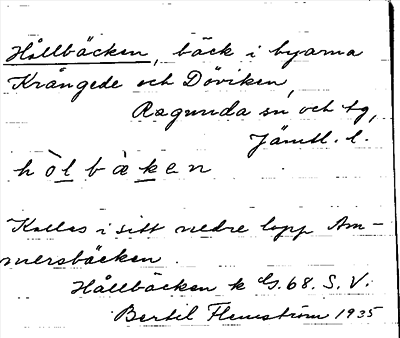 Hållbäcken, bäck i byarna
Krångede och Döviken,
Ragunda sn och tg,
Jämtl. l.
hòlbàken
Kallas i sitt nedre lopp Am-
mersbäcken.
Hållbäcken k G.68. S.V.
Bertil Flemström 1935